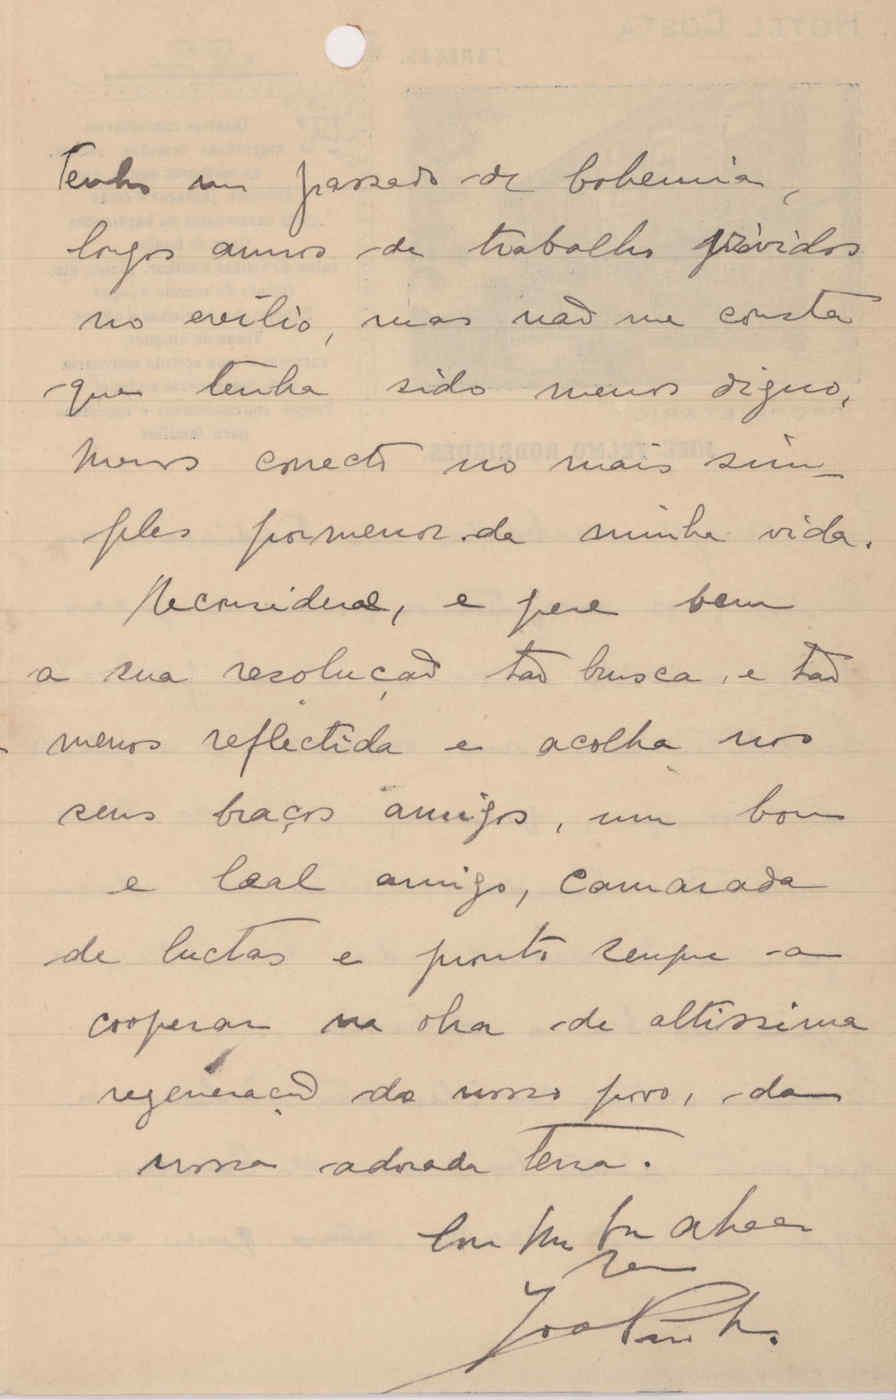 Tenho um passado de bohemia,
longos annos de trabalho vividos
no exilio, mas naõ me consta
que tenha sido menos digno,
menos correcto no mais sim-
ples pormenor da minha vida.
Reconsidere, e pese bem
a sua resoluçaõ taõ brusca, e taõ
menos reflectida e acolha nos
seus braços amigos, um bom
e leal amigo, camarada
de luctas e prompto sempre a
cooperar na obra de altissima
regeneraçaõ do nosso povo, da
nossa adorada terra.
Com um